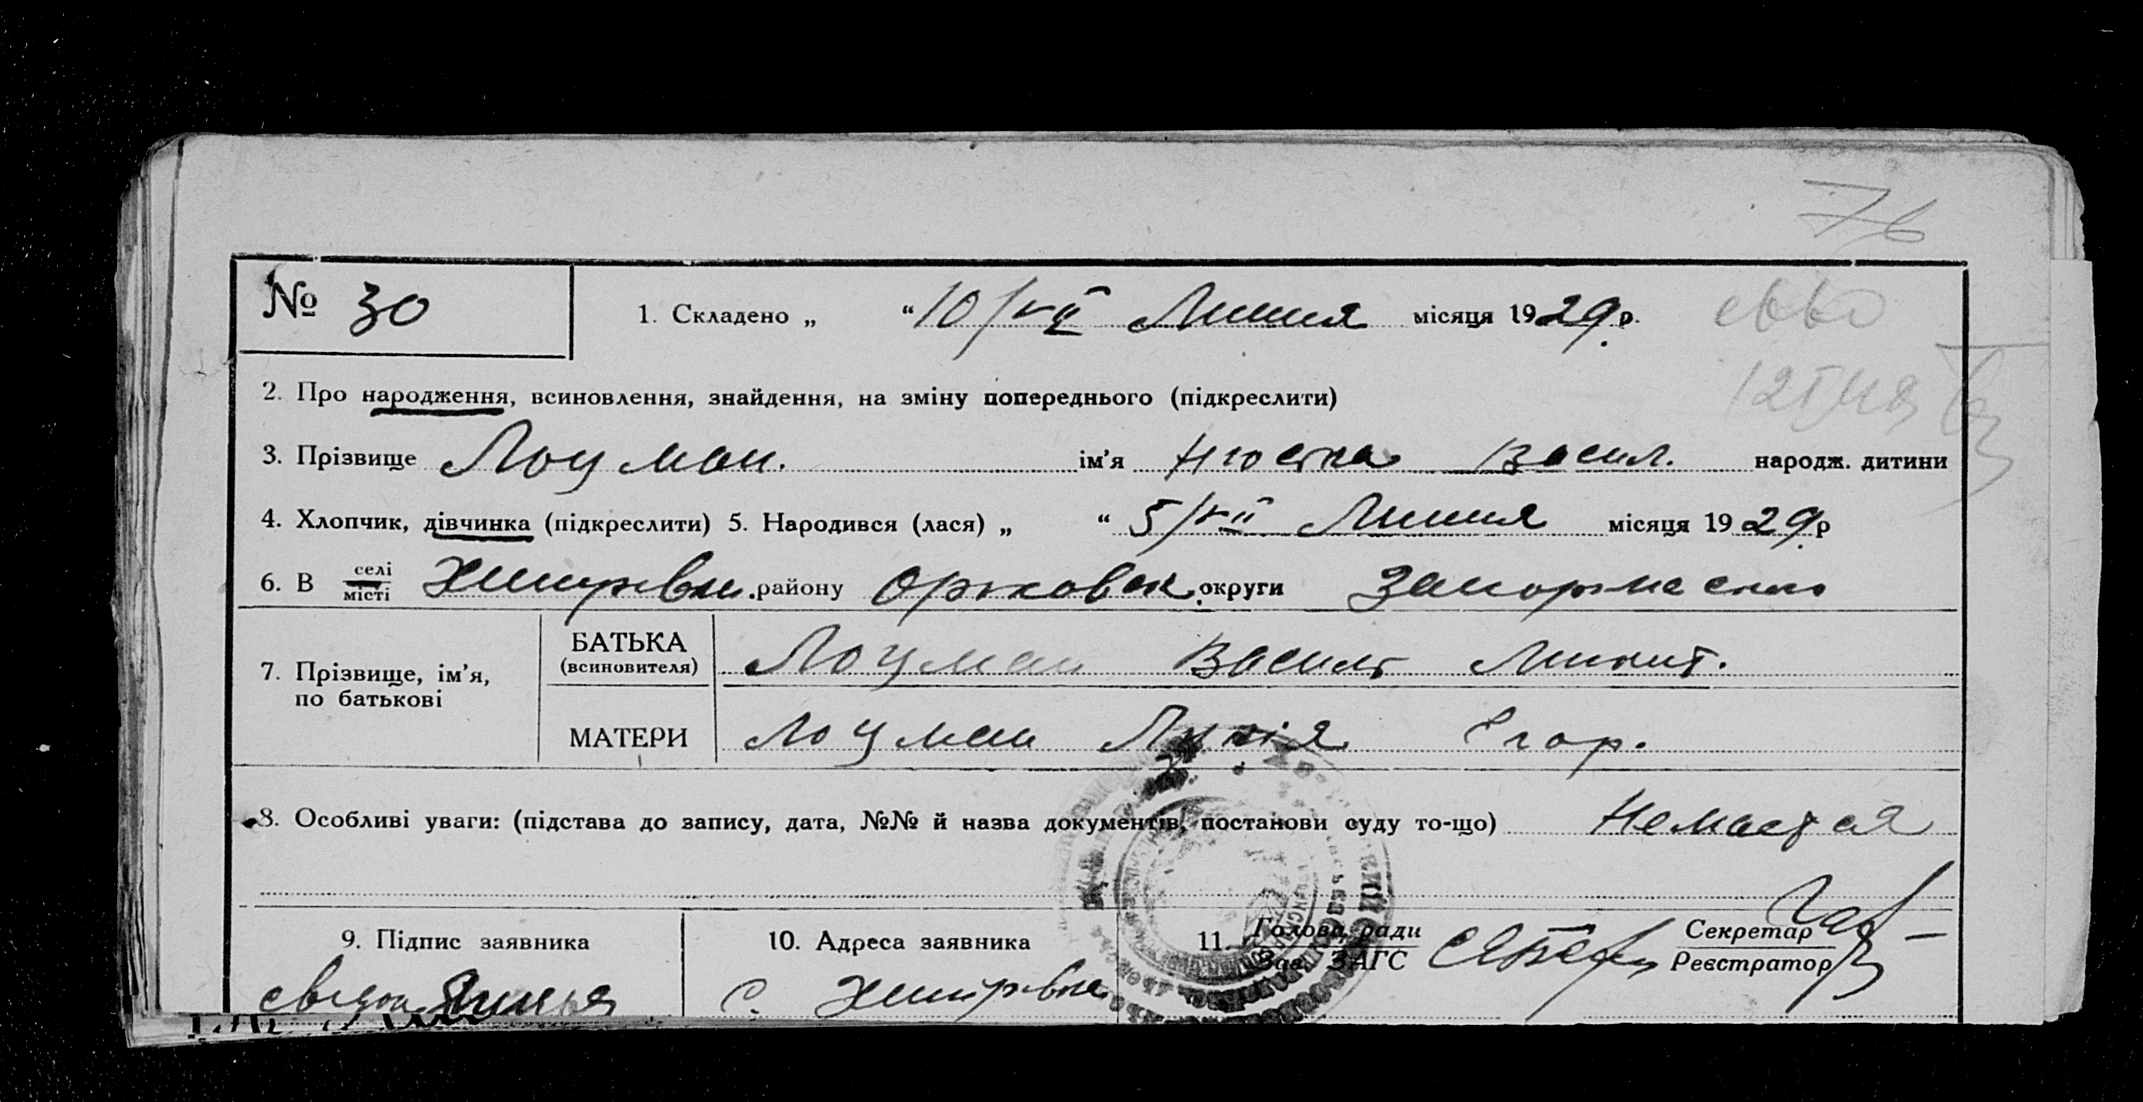 76
№ 30 1. Складено „ “ 10/VII Липня місяця 1929 р.
2. Про народження, всиновлення, знайдення, на зміну попереднього (підкреслити)
3. Прізвище Лоцман. ім'я Нюстка Васил. народж. дитини
4. Хлопчик, дівчинка (підкреслити) 5. Народився (лася) „ “ 5/VII Липня місяця 1929 р
6. В селі місті району Оріховськ округи
7. Прізвище, ім'я, по батькові
БАТЬКА (всиновителя) Лоцман Василь Микит.
МАТЕРИ Лоцман Лидія Єгор.
8. Особливі уваги: (підстава до запису, дата, №№ й назва документів, постанови суду то-що) Немається
9. Підпис заявника 10. Адреса заявника 11. Голова ради Зав. ЗАГС Секретар Реєстратор
с.